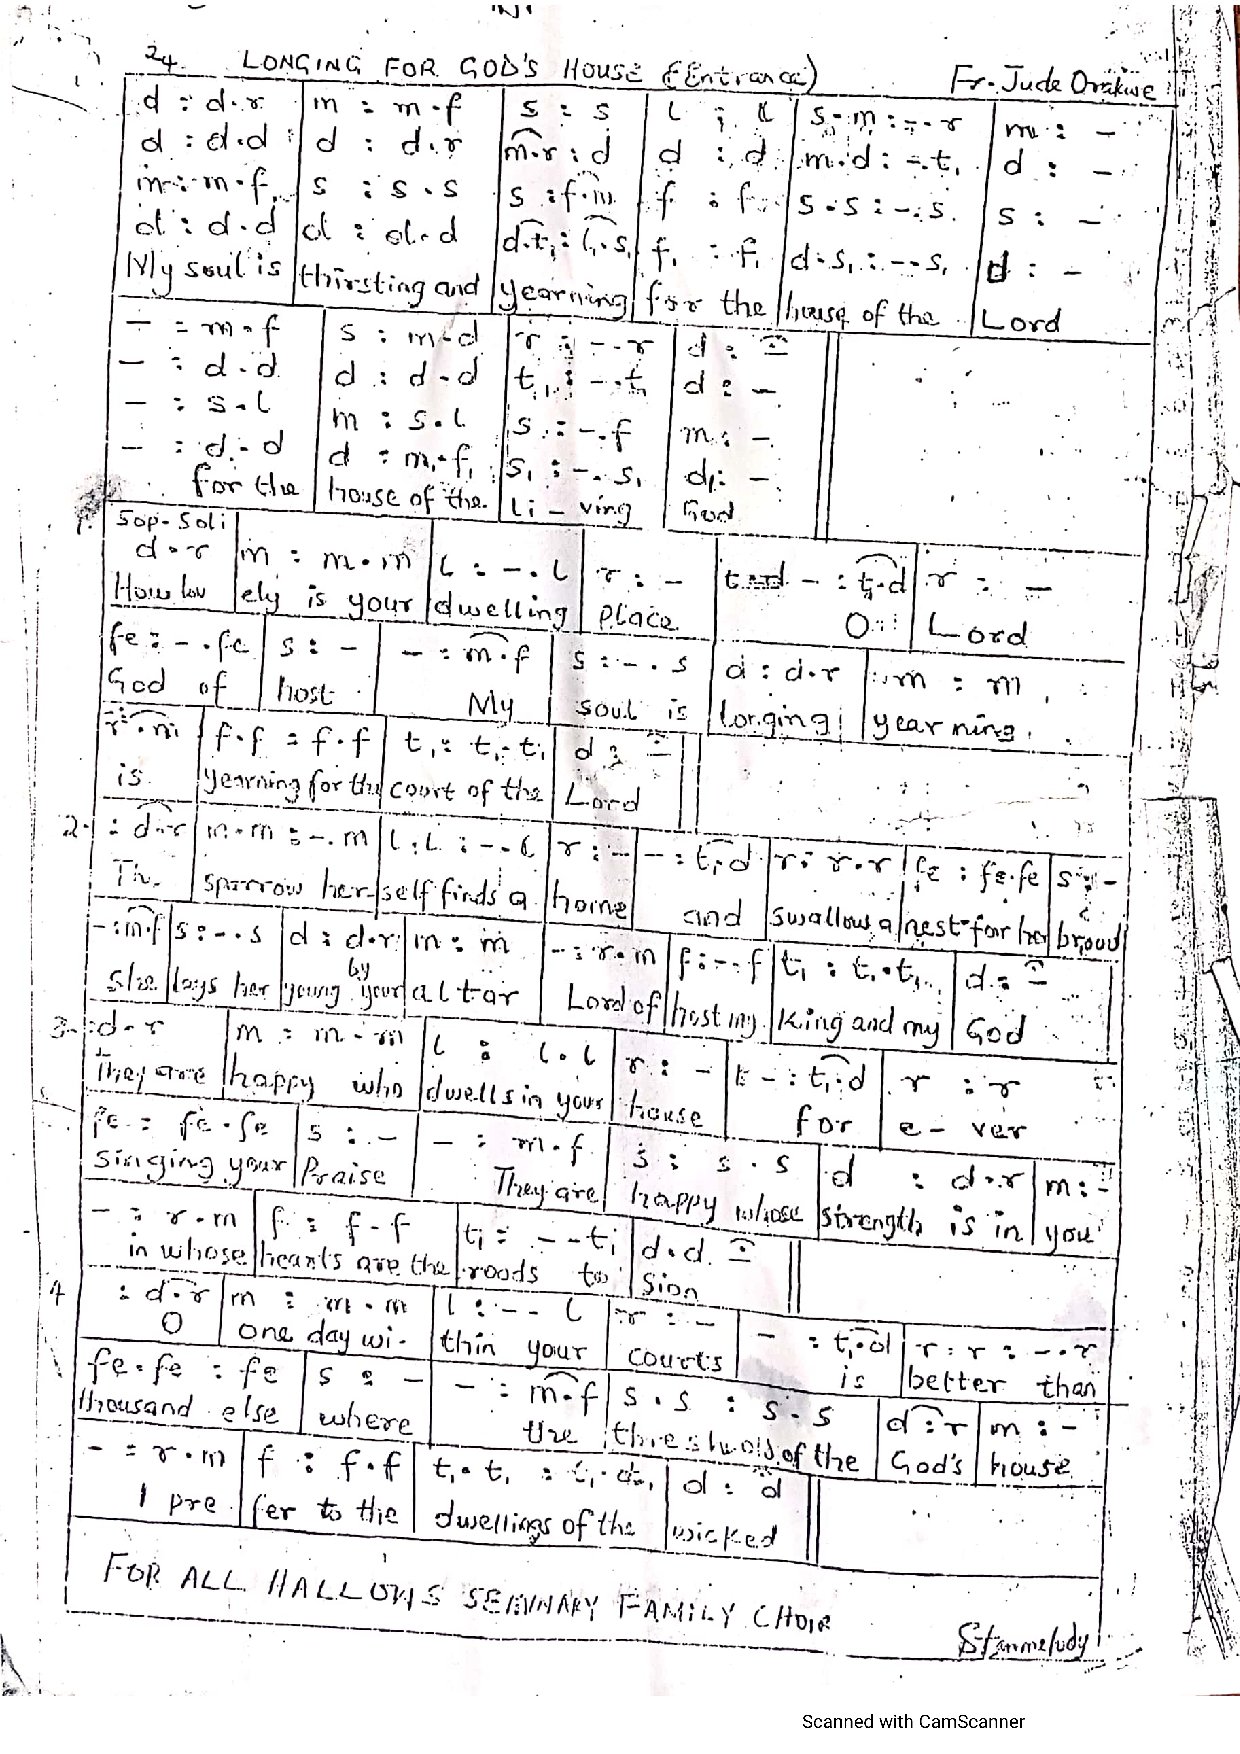 24. LONGING FOR GOD'S HOUSE (Entrance) Fr. Jude Orakwe
d : d.r | m : m.f | s : s | l : l | s.m : -.r | m : -
d : d.d | d : d.r | m.r : d | d : d | m.d : -.t₁ | d : -
m : m.f | s : s.s | s : f.m | f : f | s.s : -.s | s : -
d : d.d | d : d.d | d.t₁ : l₁.s₁ | f₁ : f₁ | d.s₁ : -.s₁ | d : -
My soul is | thirsting and | yearning | for the | house of the | Lord
- : m.f | s : m.d | r : -.r | d : -
- : d.d | d : d.d | t₁ : -.t₁ | d : -
- : s.l | m : s.l | s : -.f | m : -
- : d.d | d : m₁.f₁ | s₁ : -.s₁ | d₁ : -
for the | house of the | Li - ving | God
1. Sop. Soli
d.r | m : m.m | l : -.l | r : - | - : t₁.d | r : -
How lov | ely is your | dwelling | place | O | Lord
fe : -.fe | s : - | - : m.f | s : -.s | d : d.r | m : m
God of | host | My | soul is | longing | yearning
r.m | f.f : f.f | t₁ : t₁.t₁ | d : -
is | yearning for the | court of the | Lord
2. : d.r | m.m : -.m | l.l : -.l | r : - | - : t₁.d | r : r.r | fe : fe.fe | s : -
The | sparrow her- | self finds a | home | and | swallow a | nest for her | brood
- : m.f | s : -.s | d : d.r | m : m | - : r.m | f : -.f | t₁ : t₁.t₁ | d : -
she | lays her | young by your | altar | Lord of | host my | King and my | God
3. : d.r | m : m.m | l : l.l | r : - | - : t₁.d | r : r
They are | happy who | dwells in your | house | for | e - ver
fe : fe.fe | s : - | - : m.f | s : s.s | d : d.r | m : -
singing your | Praise | They are | happy whose | strength is in | you
- : r.m | f : f.f | t₁ : -.t₁ | d.d : -
in whose | hearts are the | roads to | Sion
4 : d.r | m : m.m | l : -.l | r : - | - : t₁.d | r.r : -.r
O | one day wi- | thin your | courts | is | better than
fe.fe : fe | s : - | - : m.f | s.s : s.s | d : r | m : -
thousand else | where | the | threshold of the | God's | house
- : r.m | f : f.f | t₁.t₁ : t₁.d₁ | d : d
I pre | fer to the | dwellings of the | wicked
FOR ALL HALLOWS SEMINARY FAMILY CHOIR
Stanmelody
Scanned with CamScanner